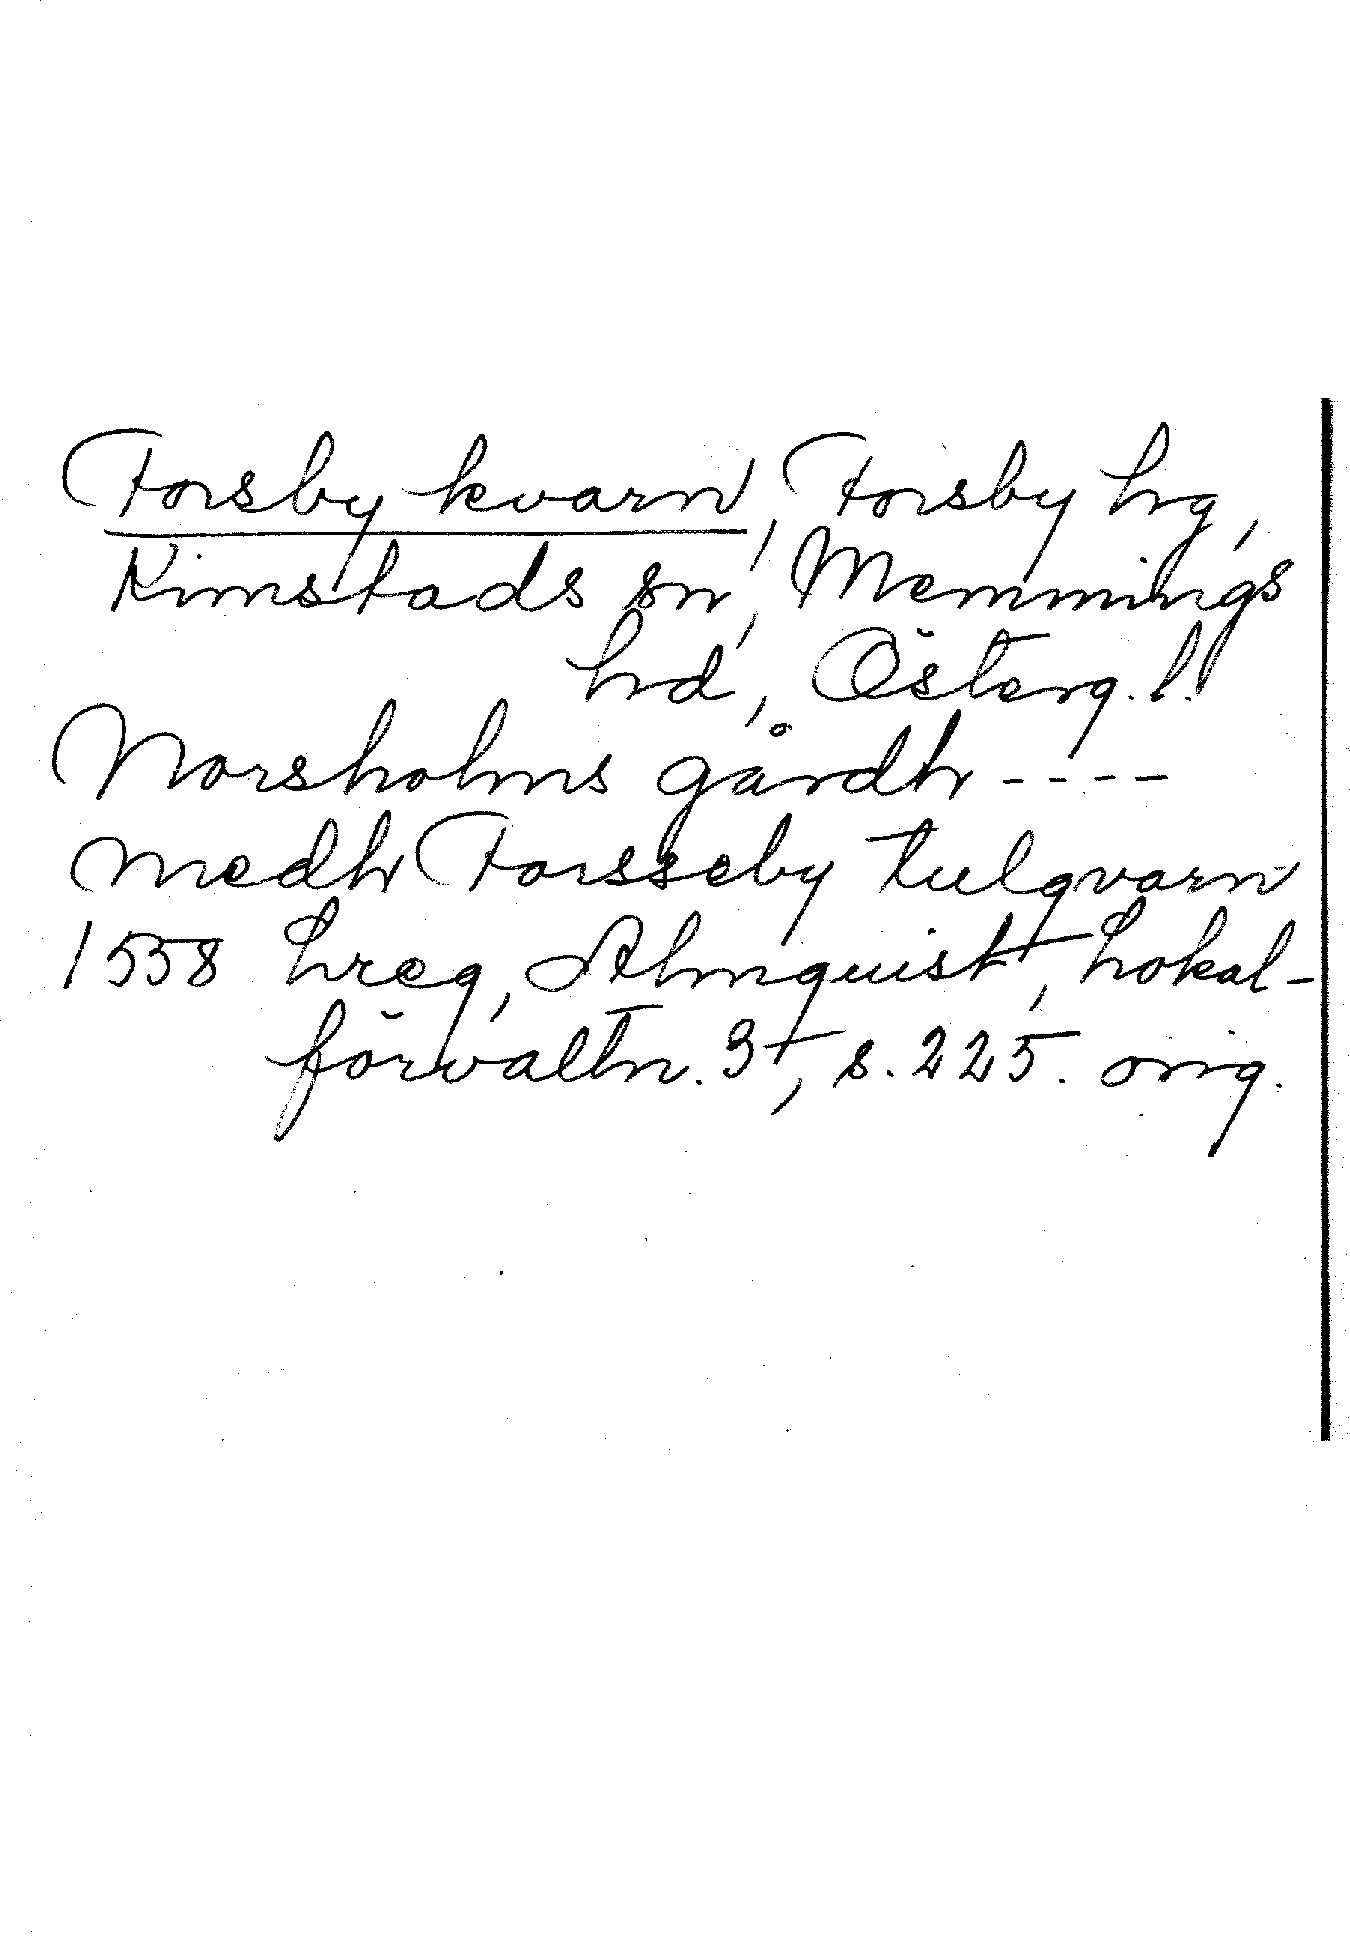 Forsby kvarn, Forsby hg,
Kimstads sn, Memmings
hd, Österg. l.
Norsholms gårdh ----
medh Forsseby tulqvarn
1558 hreg, Almquist, Lokal-
förvaltn. 3, s. 225. orig.